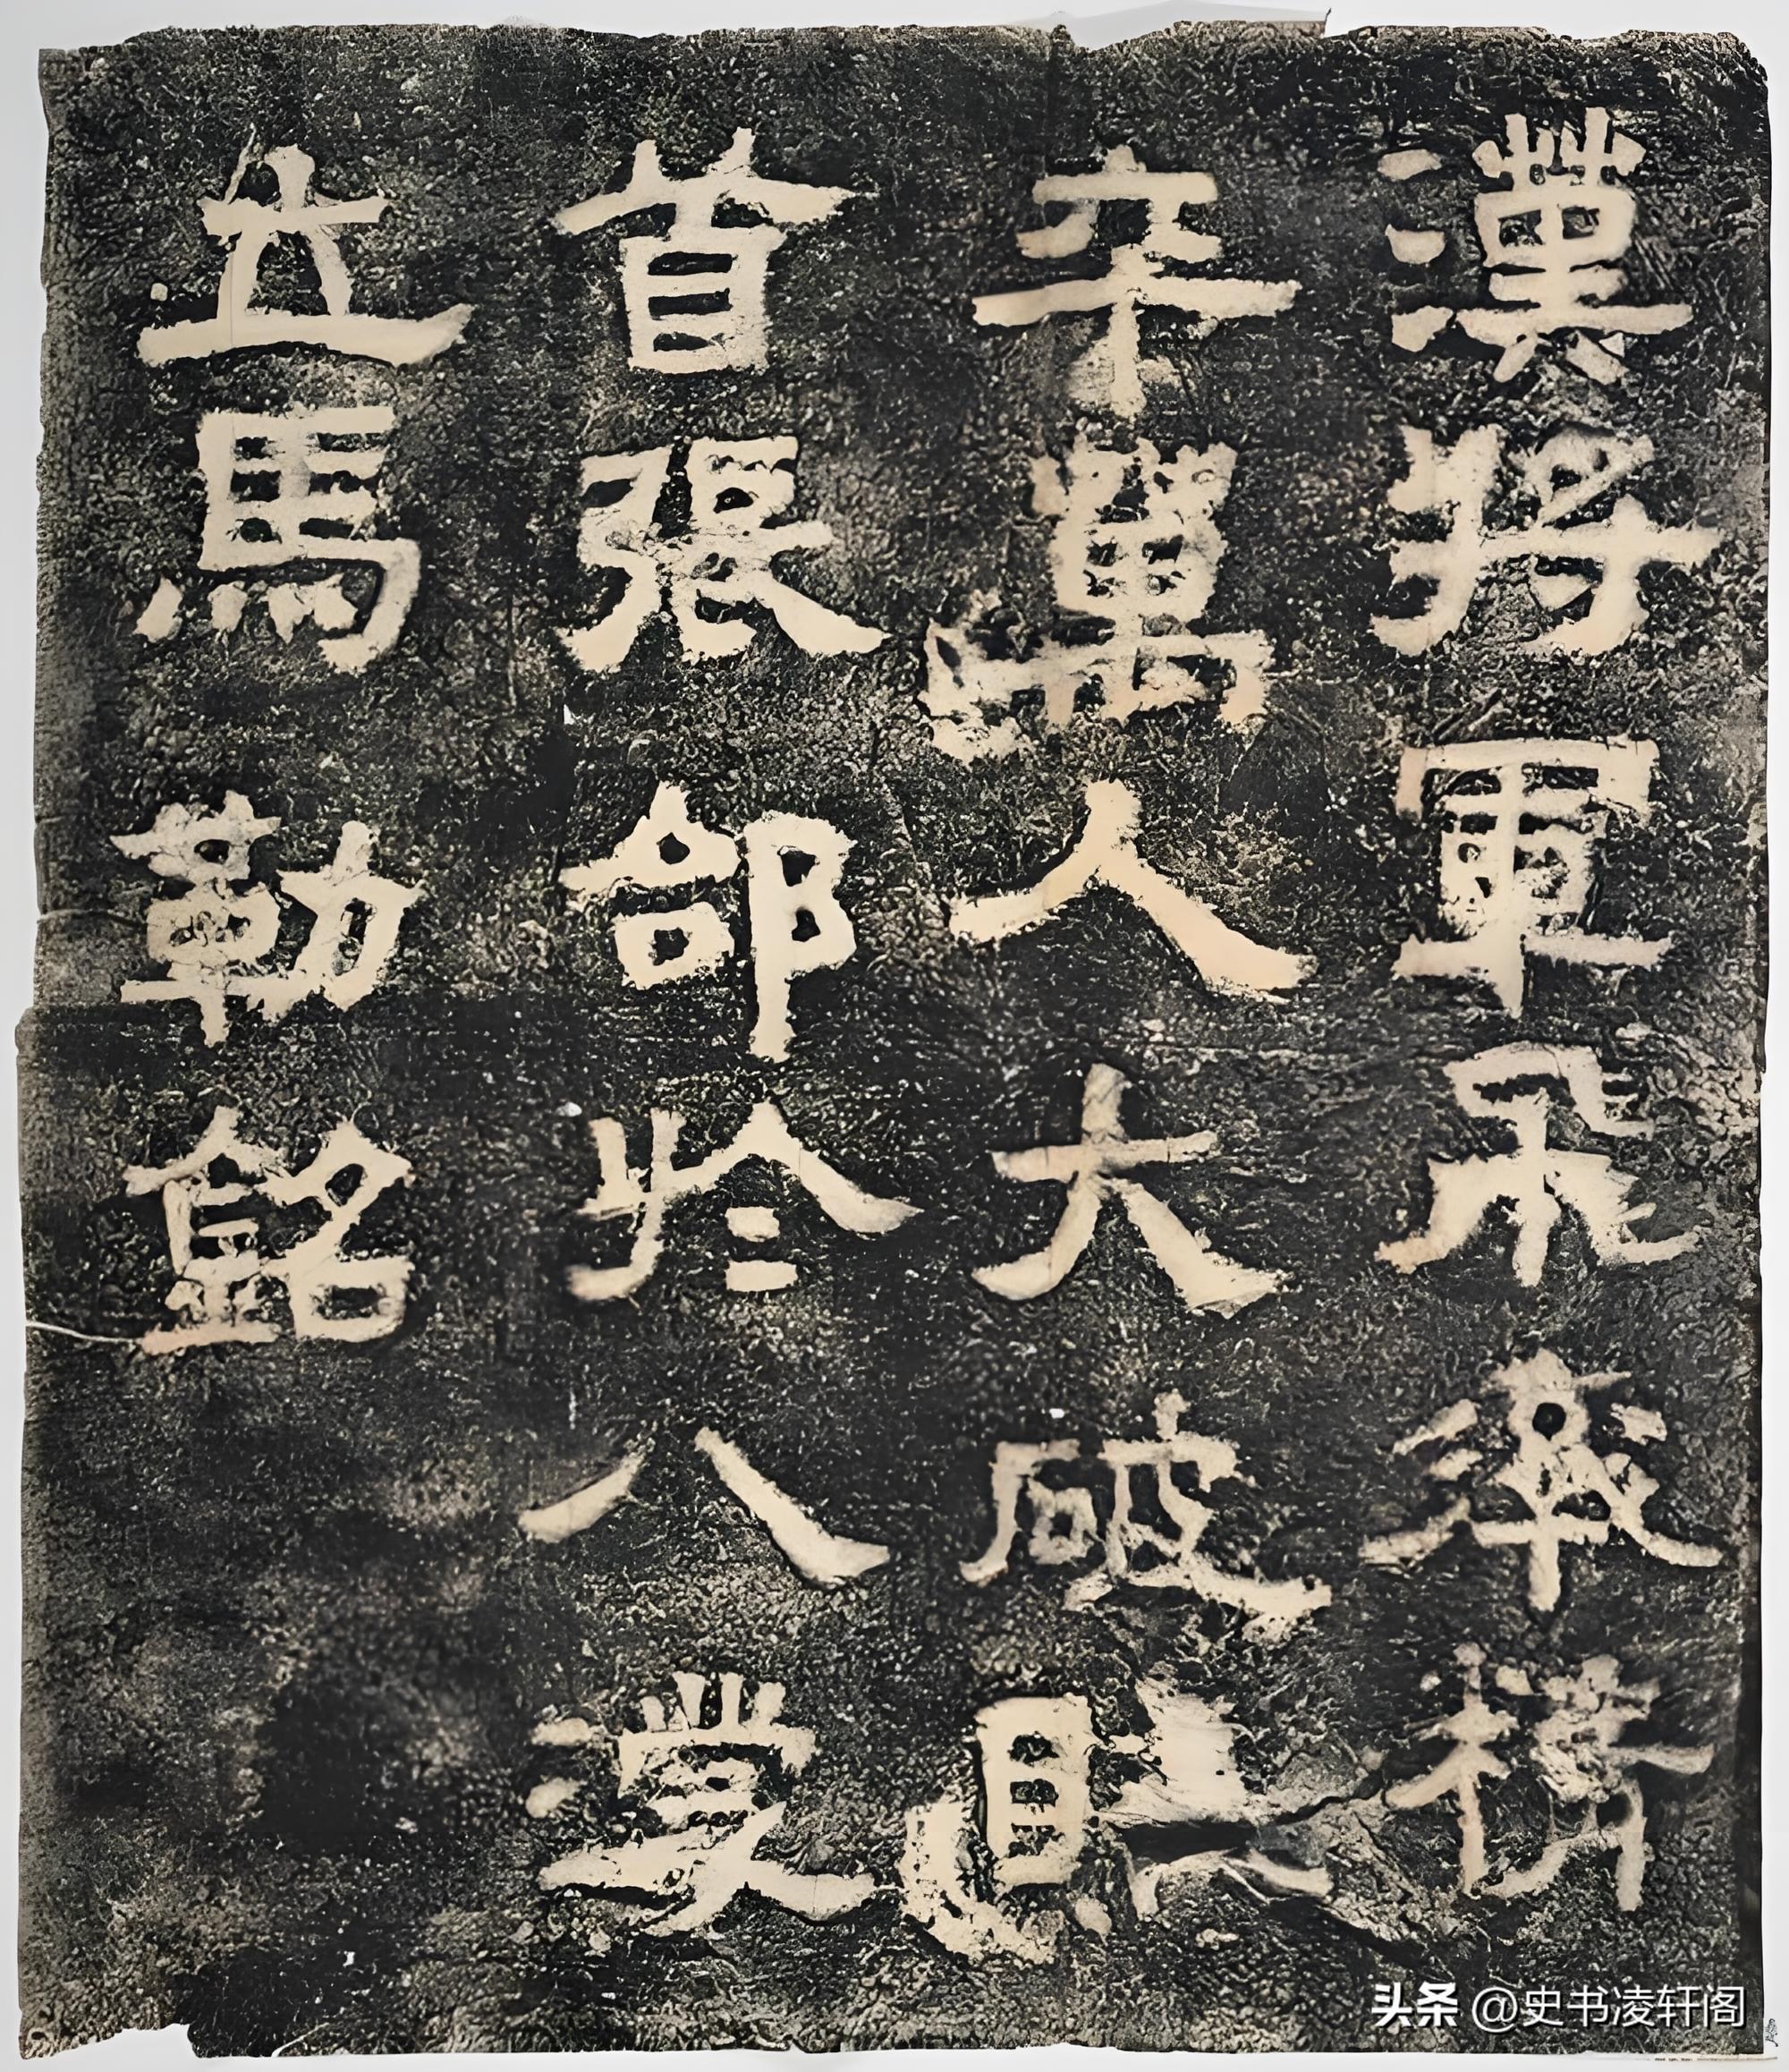 漢將軍飛率精
卒萬人大破賊
首張郃於八濛
立馬勒銘
头条 @史书凌轩阁